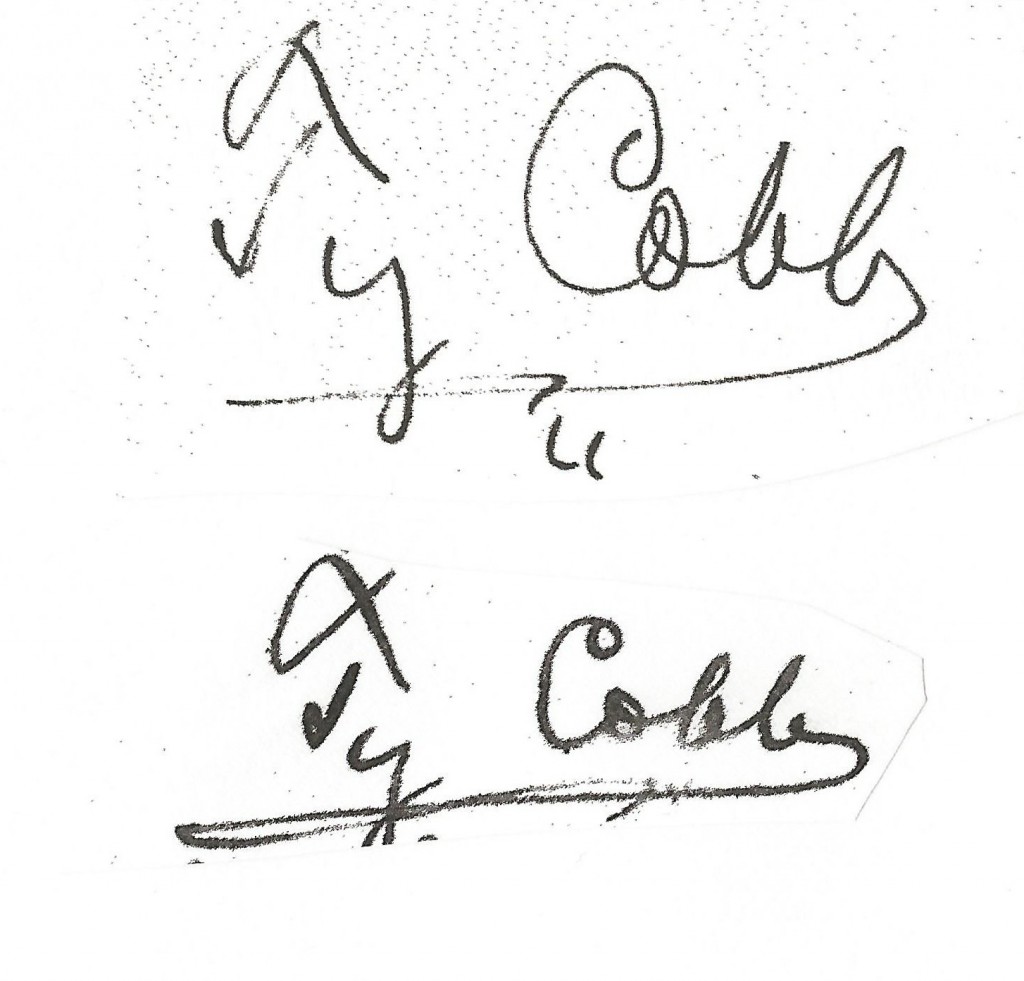 Ty Cobb
Ty Cobb